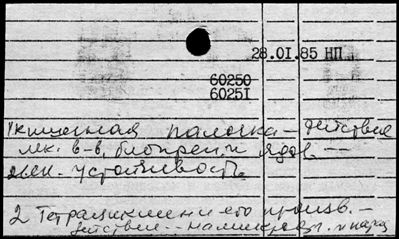 28.01.85 НП
60250
60251
1 Кишечная палочка – действие
лек. в-в, биопреп. и ядов. --
лек. устойчивость.
2 Тетрациклин и его произв. –
действие -- на микроорг.